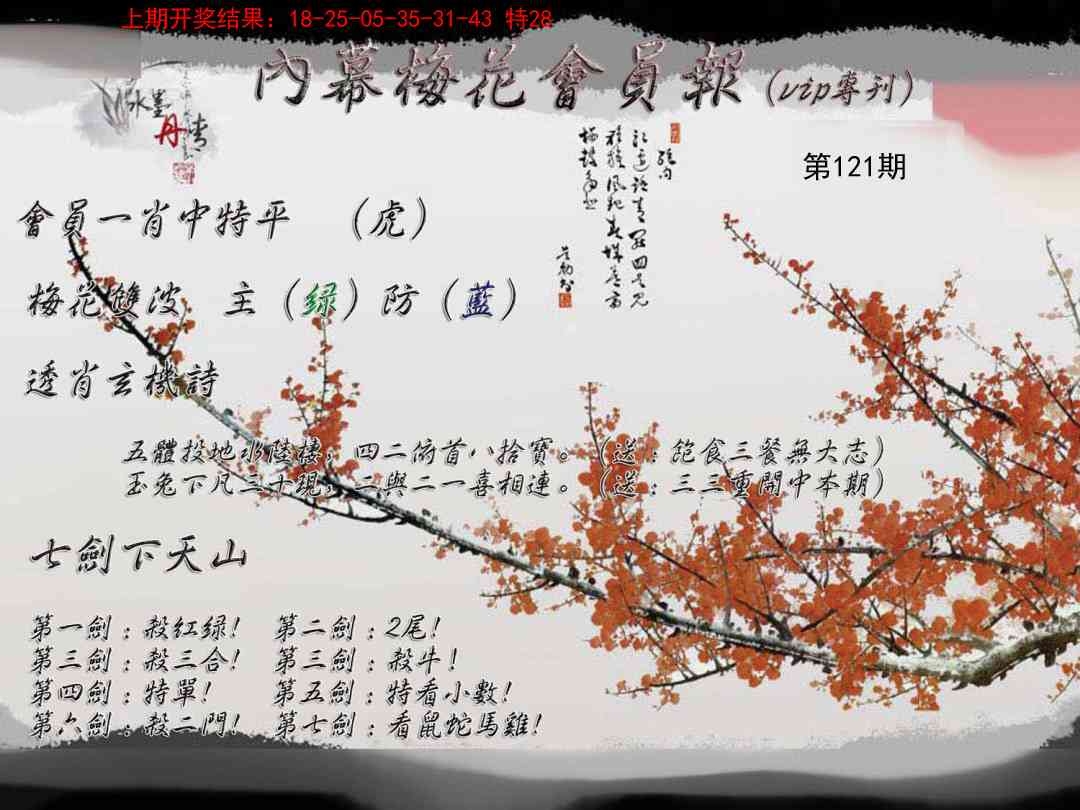 上期开奖结果：18-25-05-35-31-43 特28
內幕梅花會員報（vip專刊）
水墨丹情
第121期
會員一肖中特平　（虎）
梅花雙波　主（绿）防（藍）
透肖玄機詩
五體投地水陸樓，四二俯首八拾寶。（送：飽食三餐無大志）
玉兔下凡三十現，二與二一喜相連。（送：三三重開中本期）
七劍下天山
第一劍：殺紅绿！　第二劍：2尾！
第三劍：殺三合！　第三劍：殺牛！
第四劍：特單！　第五劍：特看小數！
第六劍：殺二門！　第七劍：看鼠蛇馬雞！